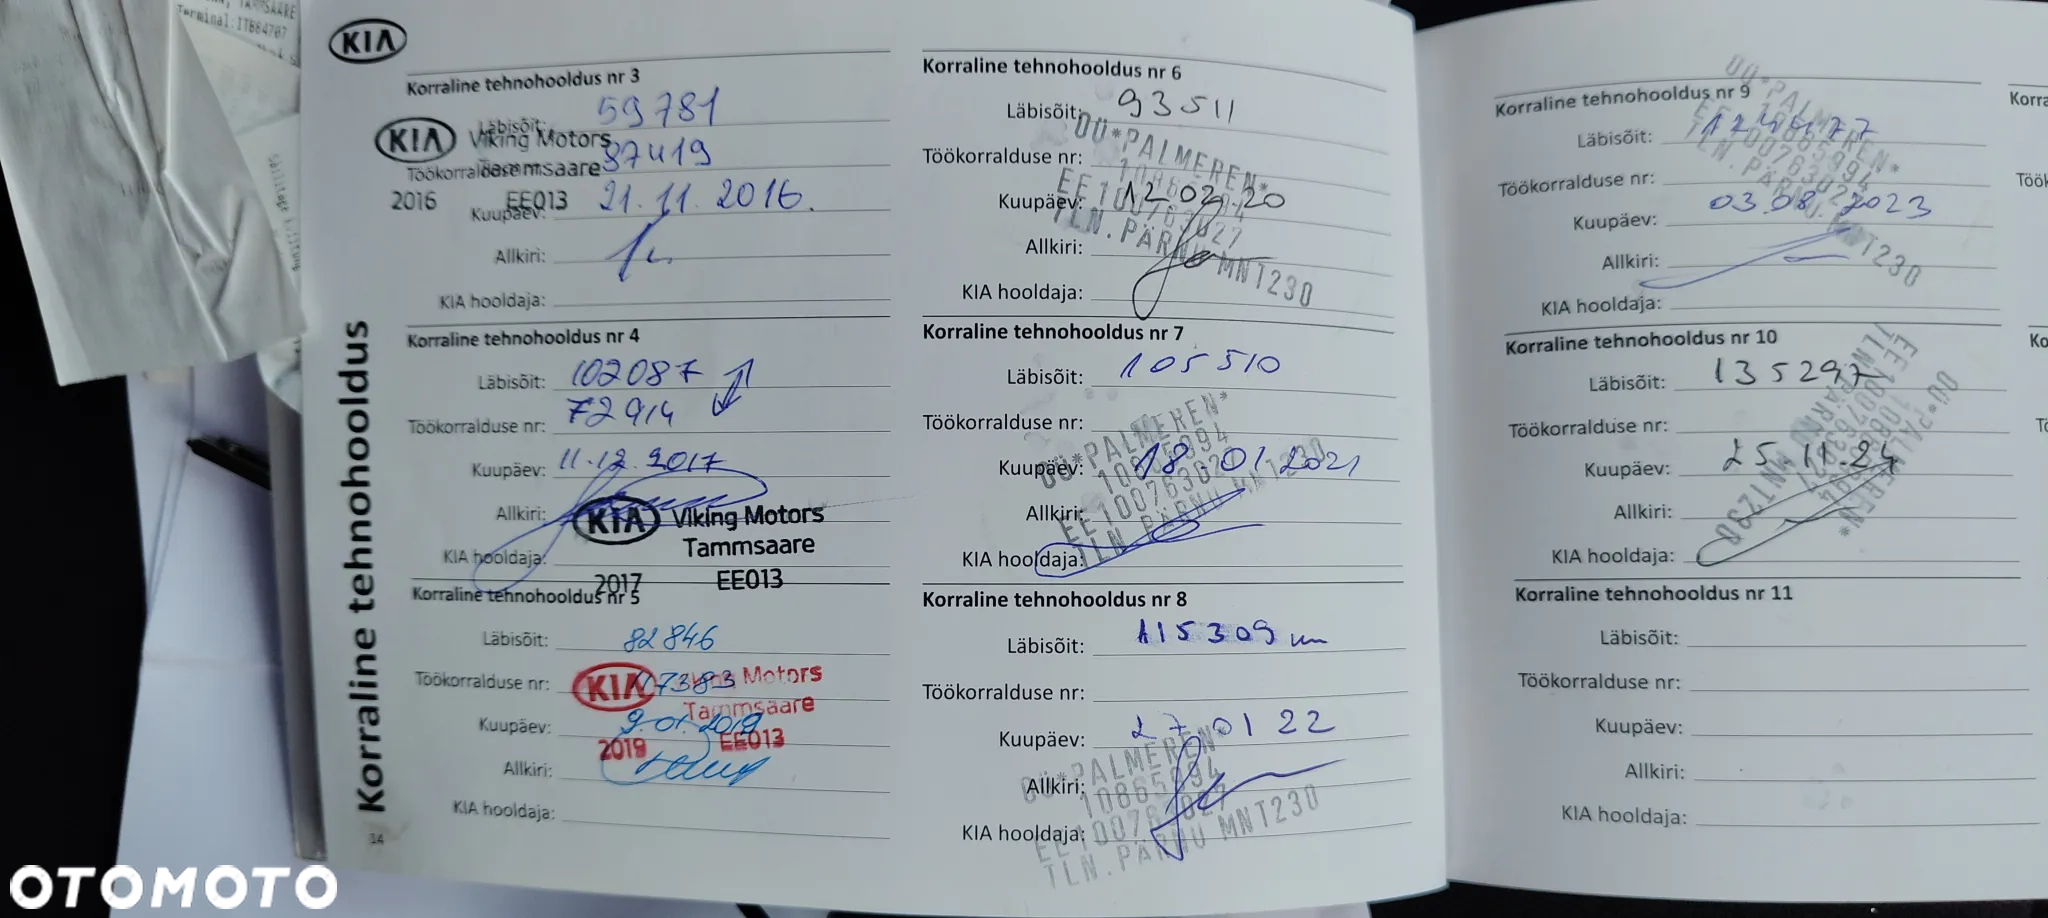 TAMMSAARE
Terminal:ITB84707
KIA
Korraline tehnohooldus
Korraline tehnohooldus nr 3
Läbisõit: 59781
KIA Viking Motors
Tammsaare
2016 EE013
Töökorralduse nr: 87419
Kuupäev: 21.11.2016.
Allkiri:
KIA hooldaja:
Korraline tehnohooldus nr 4
Läbisõit: 102087
Töökorralduse nr: 72914
Kuupäev: 11.12.2017
Allkiri:
KIA hooldaja:
KIA Viking Motors
Tammsaare
2017 EE013
Korraline tehnohooldus nr 5
Läbisõit: 82846
Töökorralduse nr: 117383
KIA Viking Motors
Tammsaare
2019 EE013
Kuupäev: 9.01.2019
Allkiri:
KIA hooldaja:
34
Korraline tehnohooldus nr 6
Läbisõit: 93511
Töökorralduse nr:
Kuupäev: 12.02.20
Allkiri:
KIA hooldaja:
OÜ*PALMEREN*
10865994
EE100763027
TLN. PÄRNU MNT230
Korraline tehnohooldus nr 7
Läbisõit: 105510
Töökorralduse nr:
Kuupäev: 18.01.2021
Allkiri:
KIA hooldaja:
OÜ*PALMEREN*
10865994
EE100763027
TLN. PÄRNU MNT230
Korraline tehnohooldus nr 8
Läbisõit: 115309 km
Töökorralduse nr:
Kuupäev: 27 01 22
Allkiri:
KIA hooldaja:
OÜ*PALMEREN*
10865994
EE100763027
TLN. PÄRNU MNT230
Korraline tehnohooldus nr 9
Läbisõit: 124477
Töökorralduse nr:
Kuupäev: 03.08.2023
Allkiri:
KIA hooldaja:
OÜ*PALMEREN*
10865994
EE100763027
TLN. PÄRNU MNT230
Korraline tehnohooldus nr 10
Läbisõit: 135297
Töökorralduse nr:
Kuupäev: 25.11.24
Allkiri:
KIA hooldaja:
OÜ*PALMEREN*
10865994
EE100763027
TLN. PÄRNU MNT230
Korraline tehnohooldus nr 11
Läbisõit:
Töökorralduse nr:
Kuupäev:
Allkiri:
KIA hooldaja:
OTOMOTO